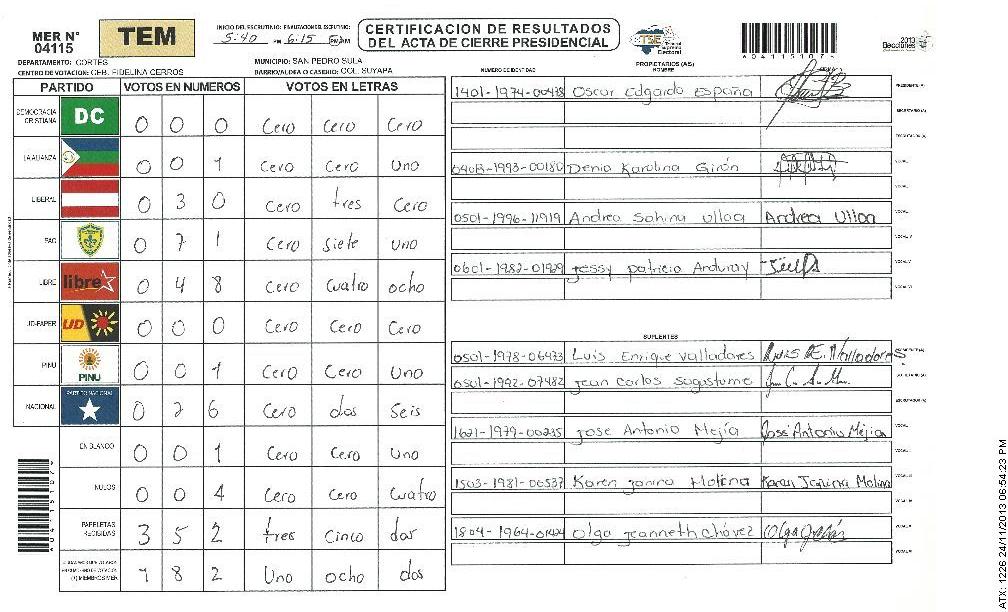 MER N°
04115
TEM
INICIO DEL ESCRUTINIO: FINALIZACION DEL ESCRUTINIO:
5:40 PM 6:15 PM
CERTIFICACION DE RESULTADOS
DEL ACTA DE CIERRE PRESIDENCIAL
TSE
Tribunal Supremo Electoral
2013
Elecciones
A04115107
DEPARTAMENTO: CORTES
MUNICIPIO: SAN PEDRO SULA
CENTRO DE VOTACION: CEB. FIDELINA CERROS
BARRIO/ALDEA O CASERIO: COL. SUYAPA
PARTIDO VOTOS EN NUMEROS VOTOS EN LETRAS
DEMOCRACIA CRISTIANA DC 0 0 0 Cero Cero Cero
LA ALIANZA 0 0 1 Cero Cero Uno
LIBERAL 0 3 0 Cero tres Cero
PAC 0 7 1 Cero Siete Uno
LIBRE libre 0 4 8 Cero Cuatro ocho
UD-FAPER UD 0 0 0 Cero Cero Cero
PINU PINU 0 0 1 Cero Cero Uno
NACIONAL PARTIDO NACIONAL 0 2 6 Cero dos Seis
EN BLANCO 0 0 1 Cero Cero Uno
NULOS 0 0 4 Cero Cero Cuatro
PAPELETAS RECIBIDAS 3 5 2 tres Cinco dos
1 8 2 Uno ocho dos
NUMERO DE IDENTIDAD
PROPIETARIOS (AS)
NOMBRE
FIRMA
1401-1974-00478 Oscar Edgardo España PRESIDENTE (A)
SECRETARIO (A)
ESCRUTADOR (A)
0408-1993-00180 Denia Karolina Girón VOCAL I
0501-1996-11919 Andrea Sahina Ulloa Andrea Ulloa
0601-1982-01929 Jessy Patricia Anduray
SUPLENTES
0501-1978-06473 Luis Enrique Valladares Luis E. Valladares PRESIDENTE (A)
0501-1992-07482 Jean Carlos Sagastume SECRETARIO (A)
ESCRUTADOR (A)
1621-1979-00235 Jose Antonio Mejía José Antonio Mejia
1503-1981-00537 Karen Janina Molina Karen Janina Molina
1804-1964-01424 Olga Jeanneth Chávez
ATX: 1226 24/11/2013 06:54:23 PM